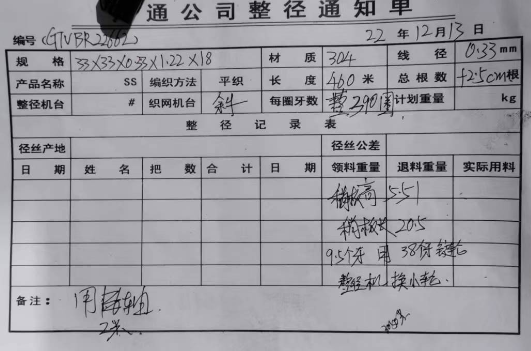 通公司整径通知单
编号 (GTVBR22662) 22年12月13日
规格 33×33×0.33×1.22×18 材质 304 线径 0.33mm
产品名称 SS 编织方法 平织 长度 460米 总根数 +2.5cm根
整径机台 # 织网机台 斜 每圈牙数 整390圈 计划重量 kg
整径记录表
径丝产地 径丝公差
日期 姓名 把数 合计 日期 领料重量 退料重量 实际用料
梢板高 5.51
梢板长 20.5
9.5个牙 用 38牙链轮
整经机 换小轮.
备注: 用
2米